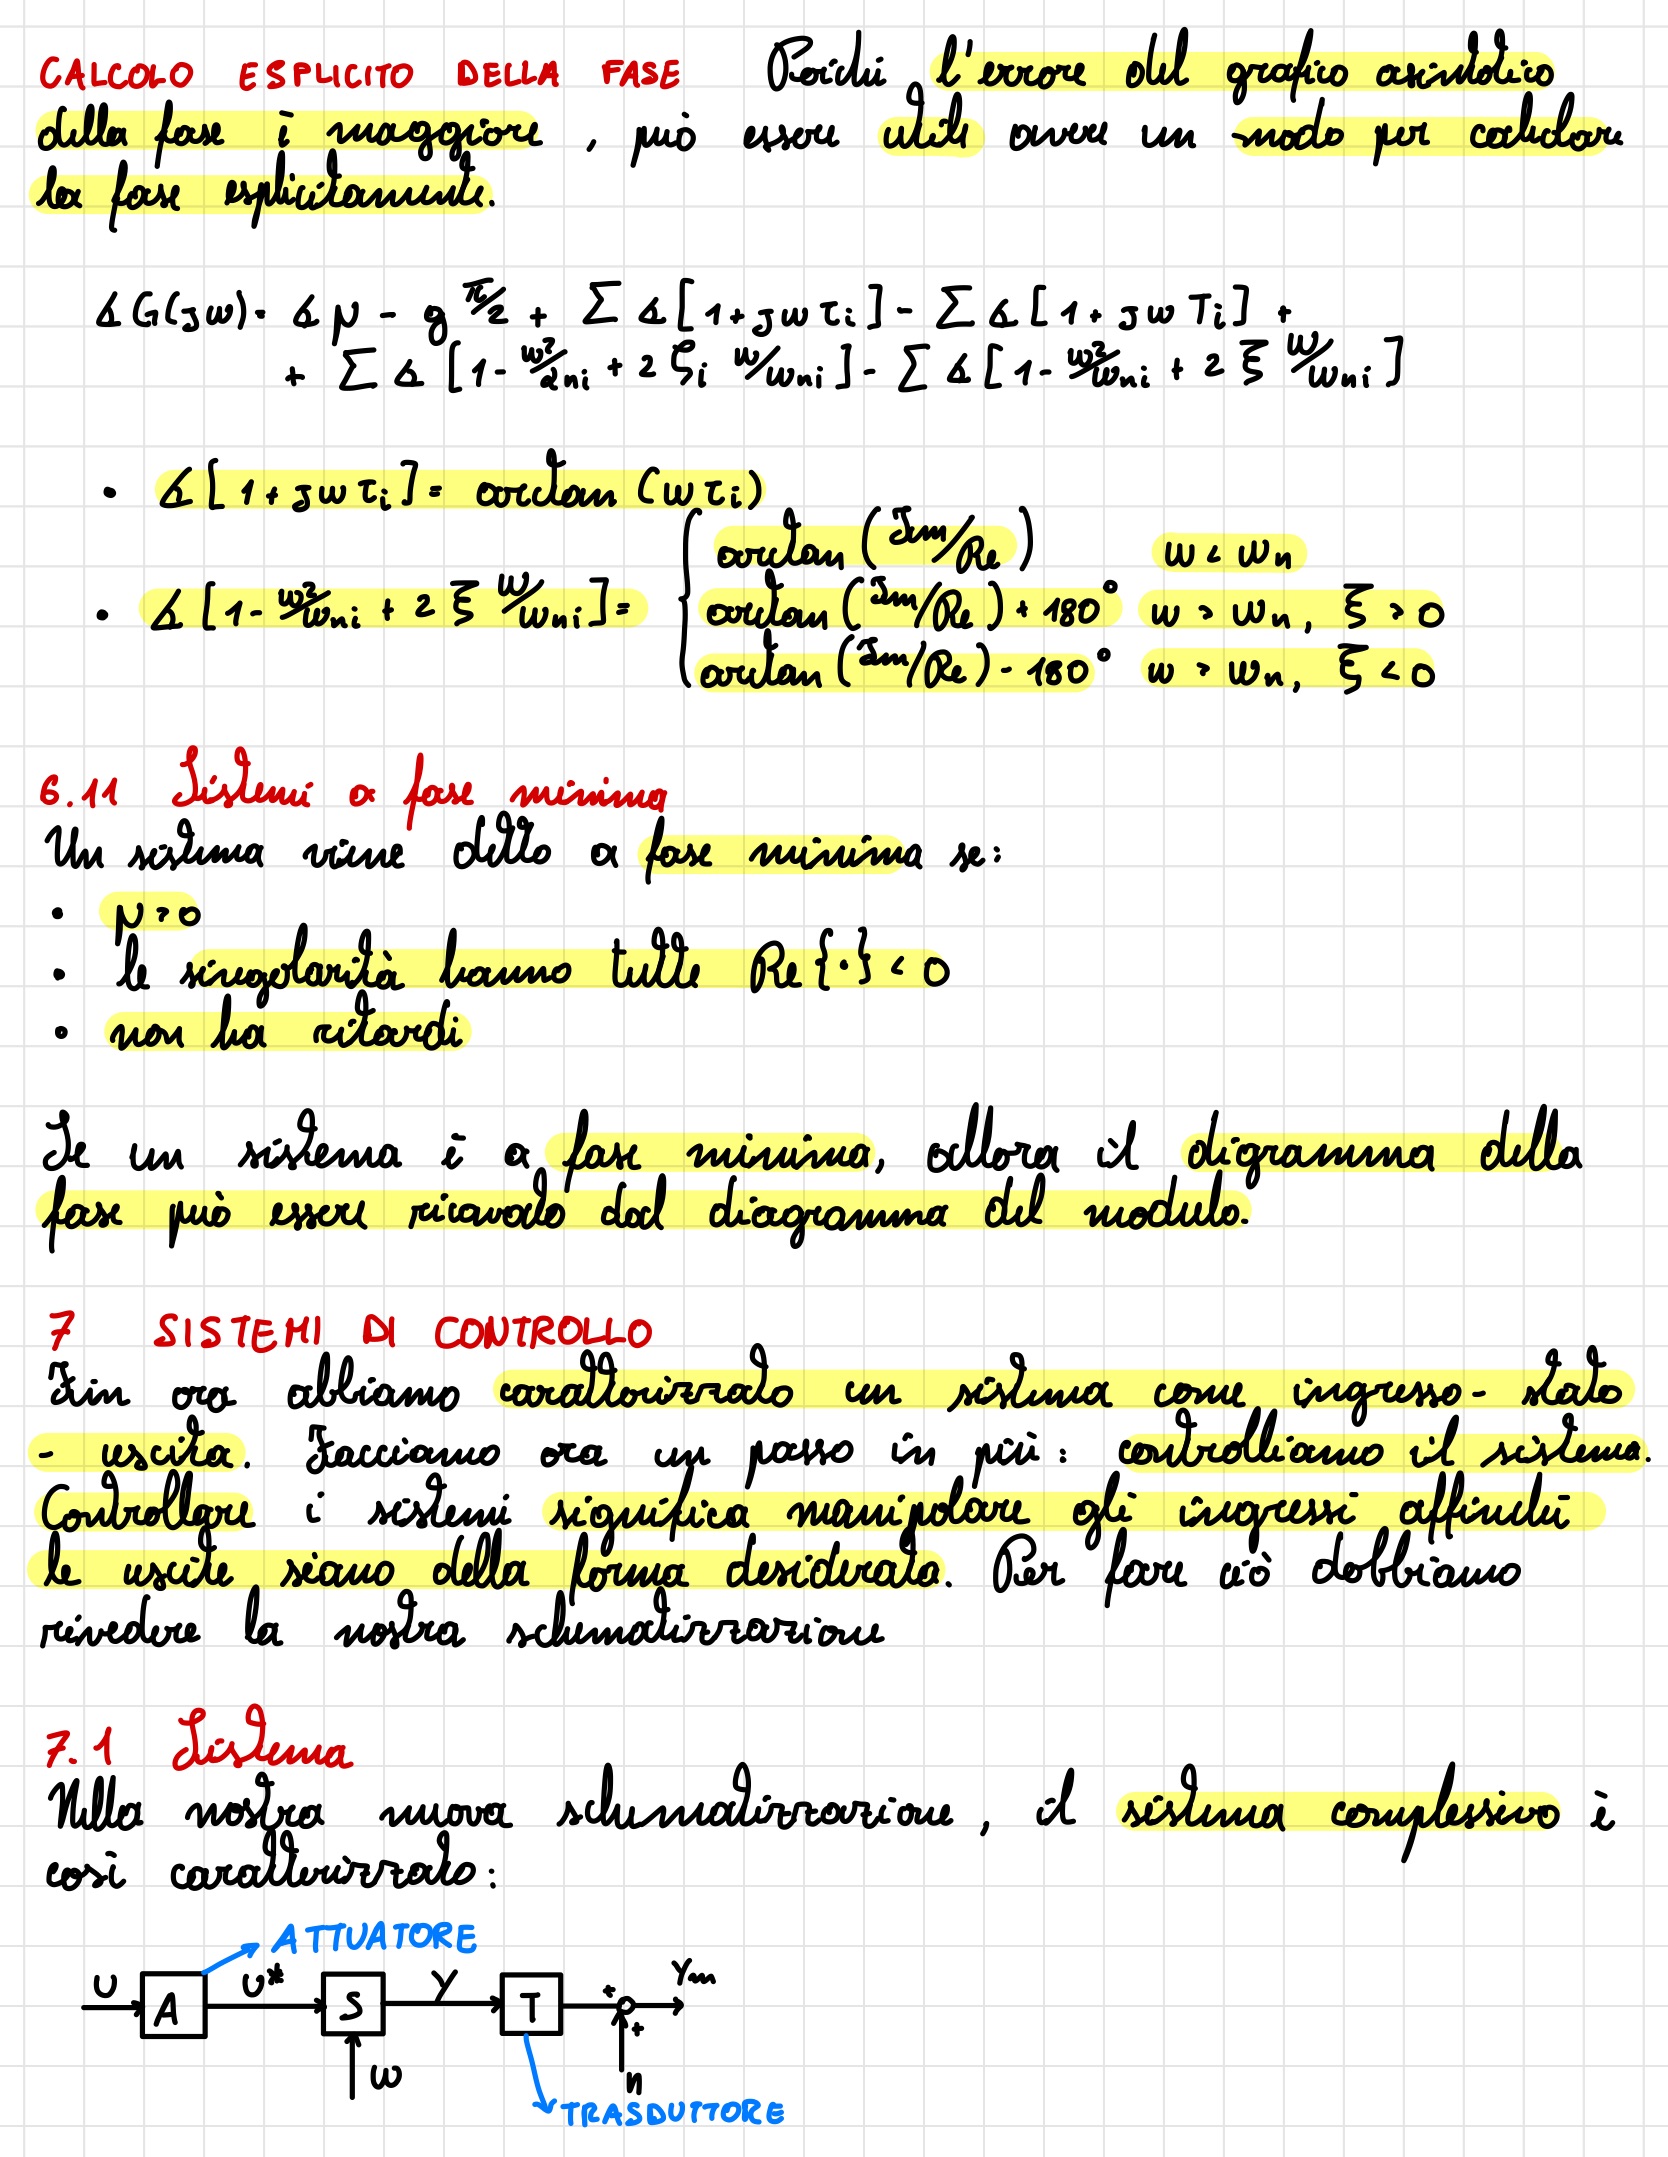 CALCOLO ESPLICITO DELLA FASE Poiché l'errore del grafico asintotico
della fase è maggiore, può essere utile avere un modo per calcolare
la fase esplicitamente.
∡G(jω)= ∡μ - g π/2 + Σ ∡[1+jωτi] - Σ ∡[1+jωTi] +
+ Σ ∡[1-ω²/αni + 2 ζi ω/ωni] - Σ ∡[1-ω²/ωni + 2 ξ ω/ωni]
• ∡[1+jωτi] = arctan(ωτi)
• ∡[1-ω²/ωni + 2 ξ ω/ωni] = { arctan(Im/Re) ω < ωn
arctan(Im/Re) + 180° ω > ωn, ξ > 0
arctan(Im/Re) - 180° ω > ωn, ξ < 0
6.11 Sistemi a fase minima
Un sistema viene detto a fase minima se:
• μ > 0
• le singolarità hanno tutte Re{·} < 0
• non ha ritardi
Se un sistema è a fase minima, allora il digramma della
fase può essere ricavato dal diagramma del modulo.
7 SISTEMI DI CONTROLLO
Fin ora abbiamo caratterizzato un sistema come ingresso - stato
- uscita. Facciamo ora un passo in più: controlliamo il sistema.
Controllare i sistemi significa manipolare gli ingressi affinché
le uscite siano della forma desiderata. Per fare ciò dobbiamo
rivedere la nostra schematizzazione
7.1 Sistema
Nella nostra nuova schematizzazione, il sistema complessivo è
così caratterizzato:
ATTUATORE
U A U* S y T + ym
+
ω n
TRASDUTTORE